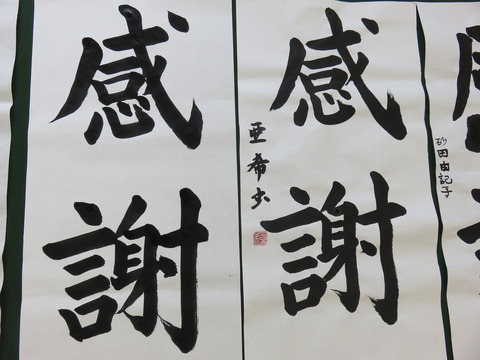 感謝
感謝
亜希書
砂田由記子